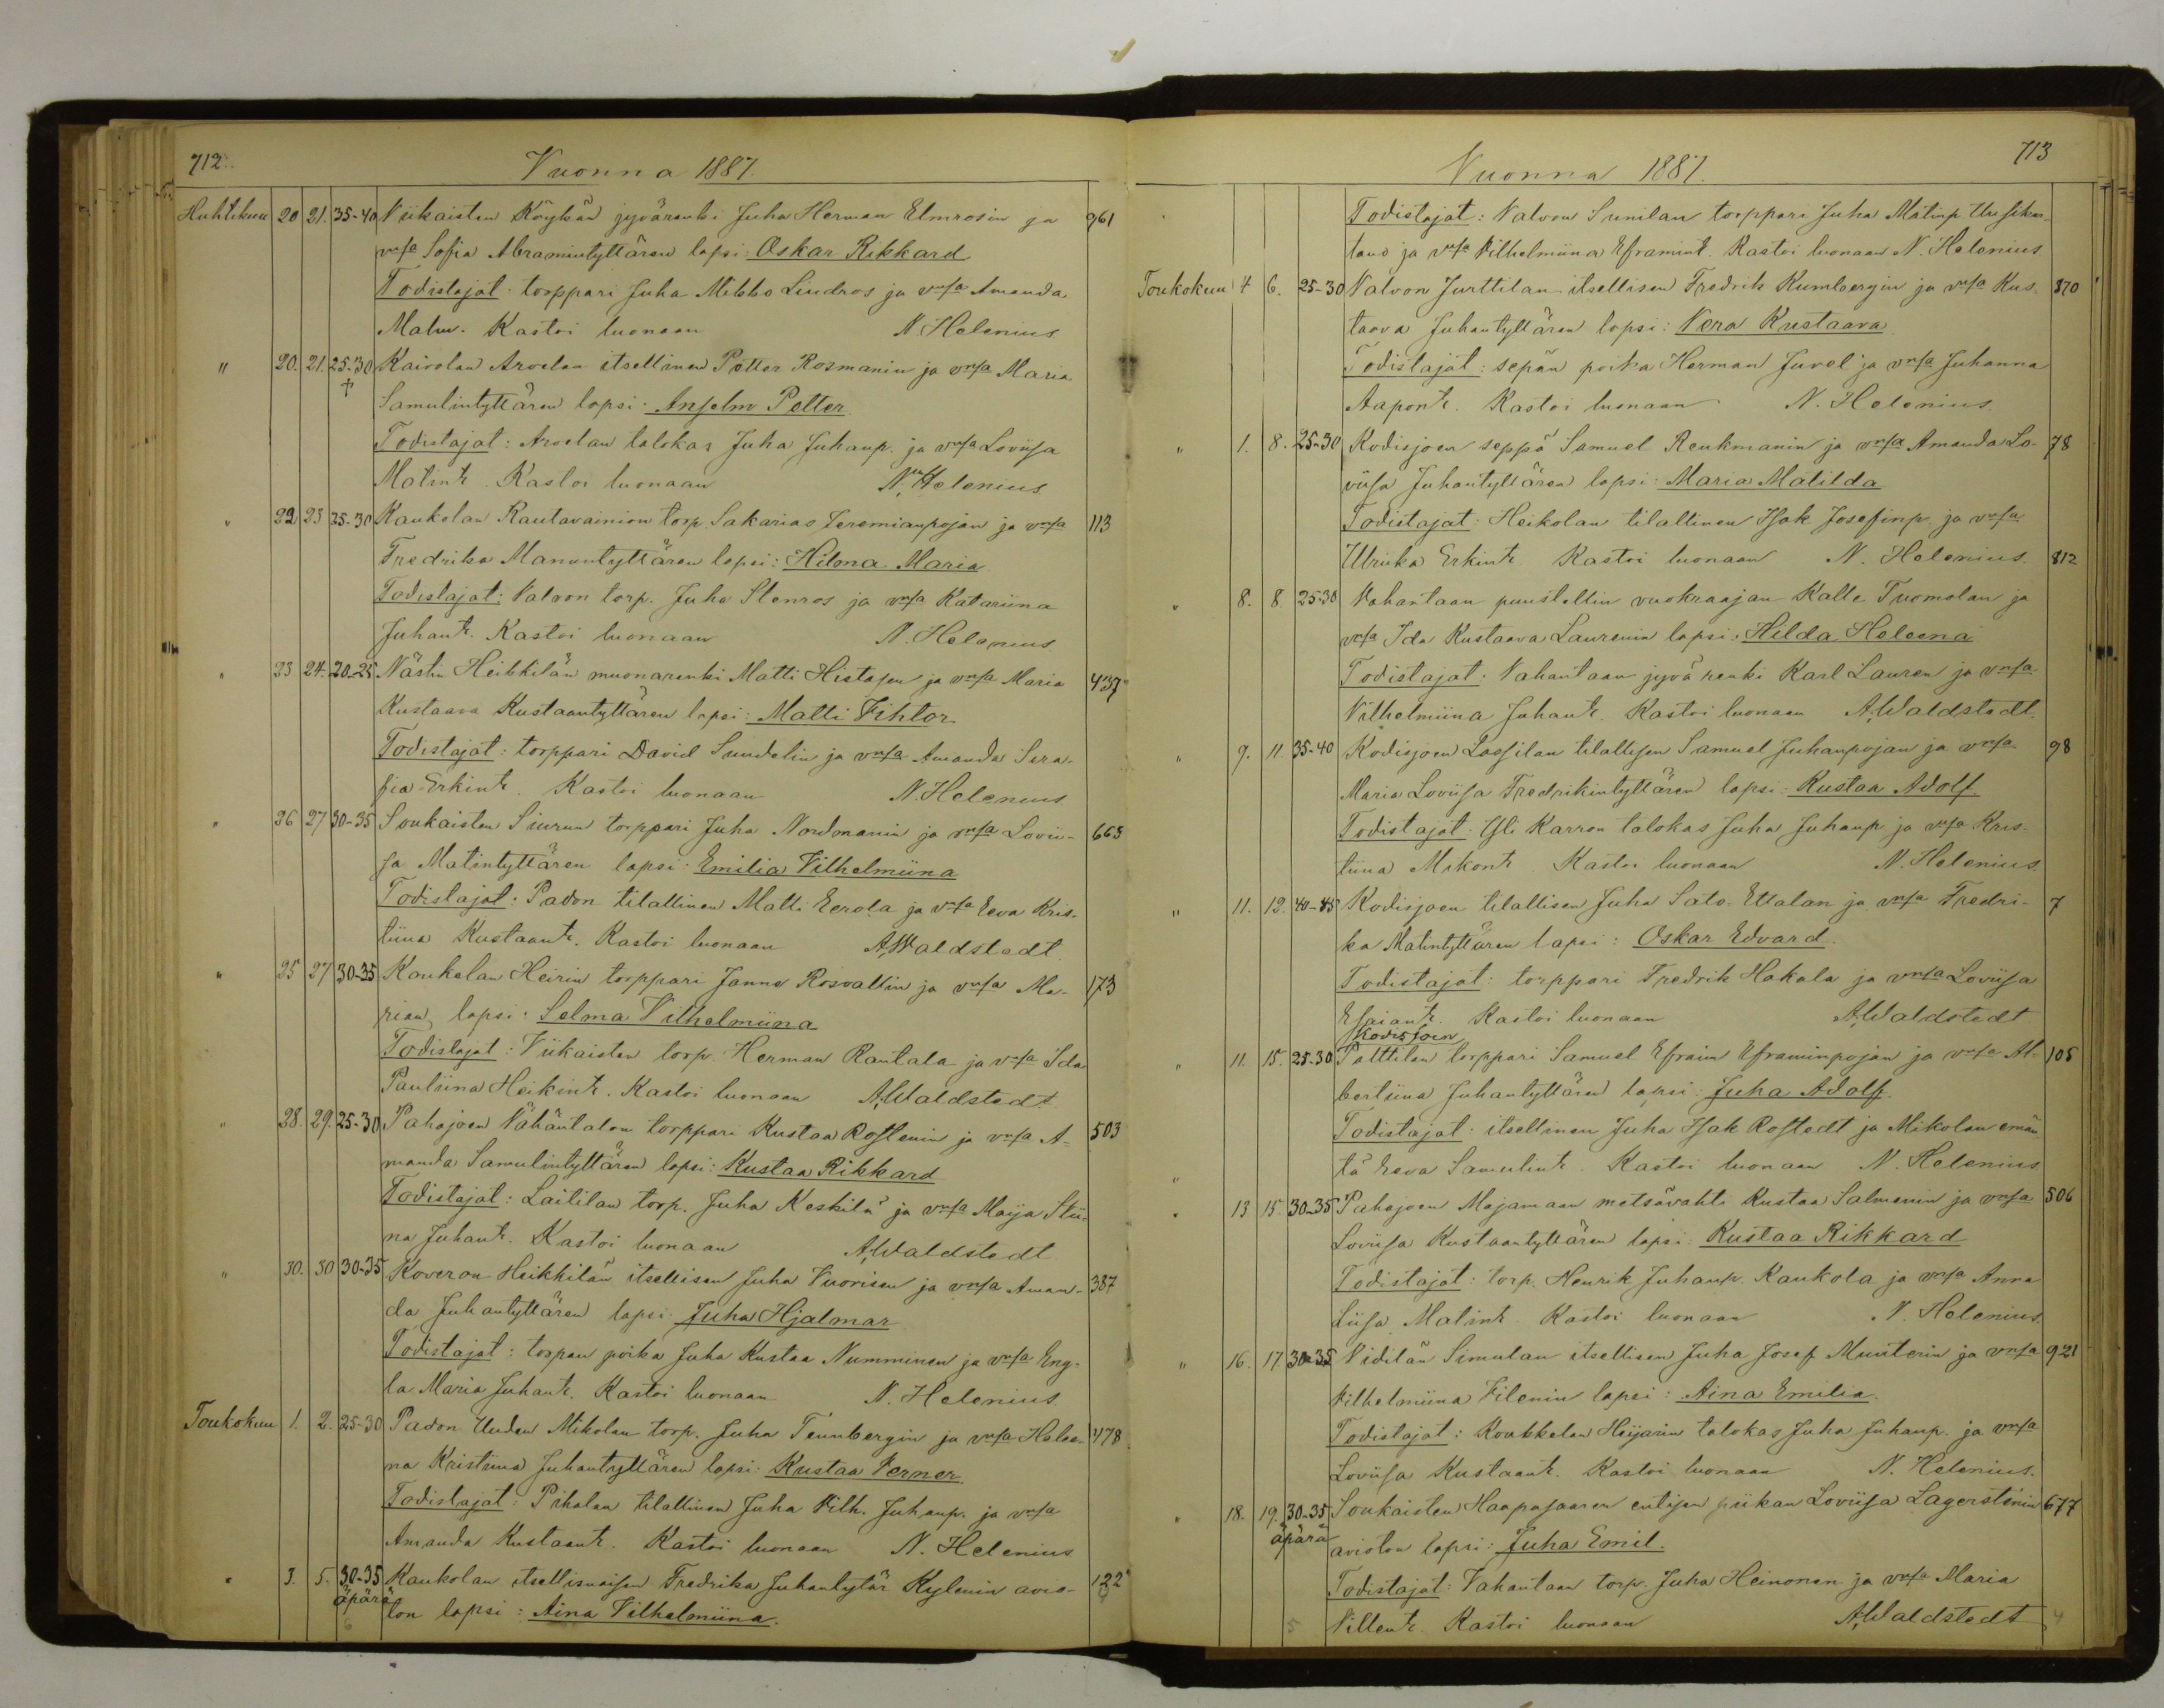 712.
Vuonna 1887.
Huhtikuu 20 21. 35-40 Viikaisten Köykän jyvärenki Juha Herman Elmrosin ja 961
vmsa Sofia Abramintyttären lapsi: Oskar Rikkard
Todistajat: torppari Juha Mikko Lindros ja vmsa Amanda
Malm. Kastoi luonaan N. Helenius
" 20. 21. 25-30 Kaivolan Arvelan itsellinen Petter Rosmanin ja vmsa Maria
† Samulintyttären lapsi: Anselm Petter.
Todistajat: Arvelan talokas Juha Juhanp. ja vmsa Loviisa
Matintr. Kastoi luonaan N. Helenius
" 22 23 25-30 Kaukolan Rautavainion torp. Sakarias Jeremianpojan ja vmsa 113
Fredrika Manuntyttären lapsi: Hilma Maria
Todistajat: Valvon torp. Juha Stenros ja vmsa Katariina
Juhantr. Kastoi luonaan N. Helenius
" 23 24. 20-25 Nästin Heikkilän muonarenki Matti Histasen ja vmsa Maria 437
Kustaava Kustaantyttären lapsi: Matti Fihtor
Todistajat: torppari David Sundelin ja vmsa Amanda Sera-
fia Erkintr. Kastoi luonaan N. Helenius
" 26 27 30-35 Soukaisten Siurun torppari Juha Nordmanin ja vmsa Lovii- 663
sa Matintyttären lapsi: Emilia Vilhelmiina
Todistajat: Padon tilallinen Matti Eerola ja vmsa Eeva Kris-
tiina Kustaantr. Kastoi luonaan A. Waldstedt
" 25 27 30-35 Koukelan Heirin torppari Janne Rosvallin ja vmsa Ma- 173
rian lapsi: Selma Vilhelmiina
Todistajat: Viikaisten torp. Herman Rantala ja vmsa Ida
Pauliina Heikintr. Kastoi luonaan A. Waldstedt
" 28. 29. 25-30 Pahojoen Vähäntalon torppari Kustaa Rostenin ja vmsa A- 503
manda Samulintyttären lapsi: Kustaa Rikkard
Todistajat: Laitilan torp. Juha Keskilä ja vmsa Maija Stii-
na Juhantr. Kastoi luonaan A. Waldstedt
" 30. 30 30-35 Koveron Heikkilän itsellisen Juha Vuorisen ja vmsa Aman- 387
da Juhantyttären lapsi: Juha Hjalmar
Todistajat: torpan poika Juha Kustaa Numminen ja vmsa Eng-
la Maria Juhantr. Kastoi luonaan N. Helenius
Toukokuu 1. 2. 25-30 Padon Uuden Mikolan torp. Juha Tennbergin ja vmsa Helee- 478
na Kristiina Juhantyttären lapsi: Kustaa Verner.
Todistajat: Pihalan tilallinen Juha Vilh. Juhanp. ja vmsa
Amanda Kustaantr. Kastoi luonaan N. Helenius
" 3. 5. 30-35 Kaukolan itsellisnaisen Fredrika Juhantytär Kylenin avio- 122
äpärä ton lapsi: Aina Vilhelmiina.
713
Vuonna 1887.
Todistajat: Valvon Sunilan torppari Juha Matinp. Uusitu-
lano ja vmsa Vilhelmiina Eframint. Kastoi luonaan N. Helenius
Toukokuu 4 6. 25-30 Valvon Jurttilan itsellisen Fredrik Kumbergin ja vmsa Kus- 870
taava Juhantyttären lapsi: Vera Kustaava
Todistajat: sepän poika Herman Juvel ja vmsa Juhanna
Aapontr. Kastoi luonaan N. Helenius.
" 1. 8. 25-30 Kodisjoen seppä Samuel Renkmanin ja vmsa Amanda Lo- 78
viisa Juhantyttären lapsi: Maria Matilda
Todistajat: Heikolan tilallinen Isak Josefinp. ja vmsa
Ulriika Erkintr. Kastoi luonaan N. Helenius. 812
" 8. 8 25-30 Vahantaan puustellin vuokraajan Kalle Tuomolan ja
vmsa Ida Kustaava Laurenin lapsi: Hilda Heleena
Todistajat: Vahantaan jyvä renki Karl Lauren ja vmsa
Vilhelmiina Juhantr. Kastoi luonaan A. Waldstedt.
" 9. 11. 35-40 Kodisjoen Lassilan tilallisen Samuel Juhanpojan ja vmsa 98
Maria Loviisa Fredrikintyttären lapsi: Kustaa Adolf
Todistajat: Yli Karron talokas Juha Juhanp. ja vmsa Kris-
tiina Mikontr. Kastoi luonaan N. Helenius.
" 11. 12. 40-45 Kodisjoen tilallisen Juha Sato-Ettalan ja vmsa Fredri- 7
ka Matintyttären lapsi: Oskar Edvard.
Todistajat: torppari Fredrik Hakala ja vmsa Loviisa
Esaiantr. Kastoi luonaan A. Waldstedt
Kodisjoen
" 11. 15. 25-30 Palttilan torppari Samuel Efraim Eframinpojan ja vmsa Al- 105
bertiina Juhantyttären lapsi: Juha Adolf.
Todistajat: itsellinen Juha Isak Rostedt ja Mikolan emän
tä Eeva Samulintr. Kastoi luonaan N. Helenius
" 13 15. 30-35 Pahojoen Majamaan metsävahti Kustaa Salmenin ja vmsa 506
Loviisa Kustaantyttären lapsi: Kustaa Rikkard
Todistajat: torp. Henrik Juhanp. Kaukola ja vmsa Anna
Liisa Matintr. Kastoi luonaan N. Helenius.
" 16. 17. 30-35 Vidilän Simulan itsellisen Juha Josef Munterin ja vmsa 921
Vilhelmiina Filenin lapsi: Aina Emilia.
Todistajat: Koukkelan Heijarin talokas Juha Juhanp. ja vmsa
Loviisa Kustaantr. Kastoi luonaan N. Helenius.
" 18. 19. 30-35 Soukaisten Haapasaaren entisen piikan Loviisa Lagerstenin 677
äpärä avioton lapsi: Juha Emil.
Todistajat: Vahantaan torp. Juha Heinonen ja vmsa Maria
Villentr. Kastoi luonaan A. Waldstedt